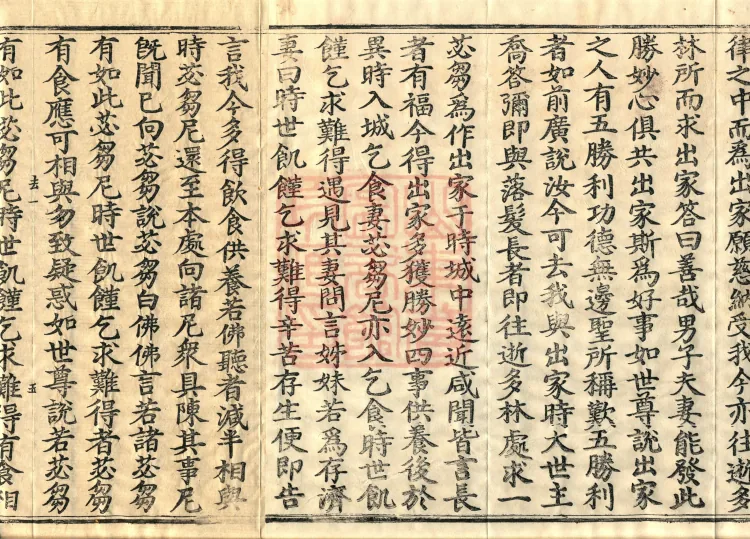 律之中而為出家願慈納受我今亦往逝多
林所而求出家答曰善哉男子夫妻能發此
勝妙心俱共出家斯為好事如世尊說出家
之人有五勝利功德無邊聖所稱歎五勝利
者如前廣說汝今可去我與出家時大世主
喬答彌即與落髮長者即往逝多林處求一
苾芻為作出家于時城中遠近咸聞皆言長
者有福今得出家多獲勝妙四事供養後於
異時入城乞食妻苾芻尼亦入乞食時世飢
饉乞求難得遇見其妻問言姊妹若為存濟
妻曰時世飢饉乞求難得辛苦存生便即告
言我今多得飲食供養若佛聽者減半相與
時苾芻尼還至本處向諸尼衆具陳其事尼
旣聞已向苾芻說苾芻白佛佛言若諸苾芻
有如此苾芻尼時世飢饉乞求難得者苾芻
有食應可相與勿致疑惑如世尊說若苾芻
去一 五
有如此苾芻尼時世飢饉乞求難得有食相